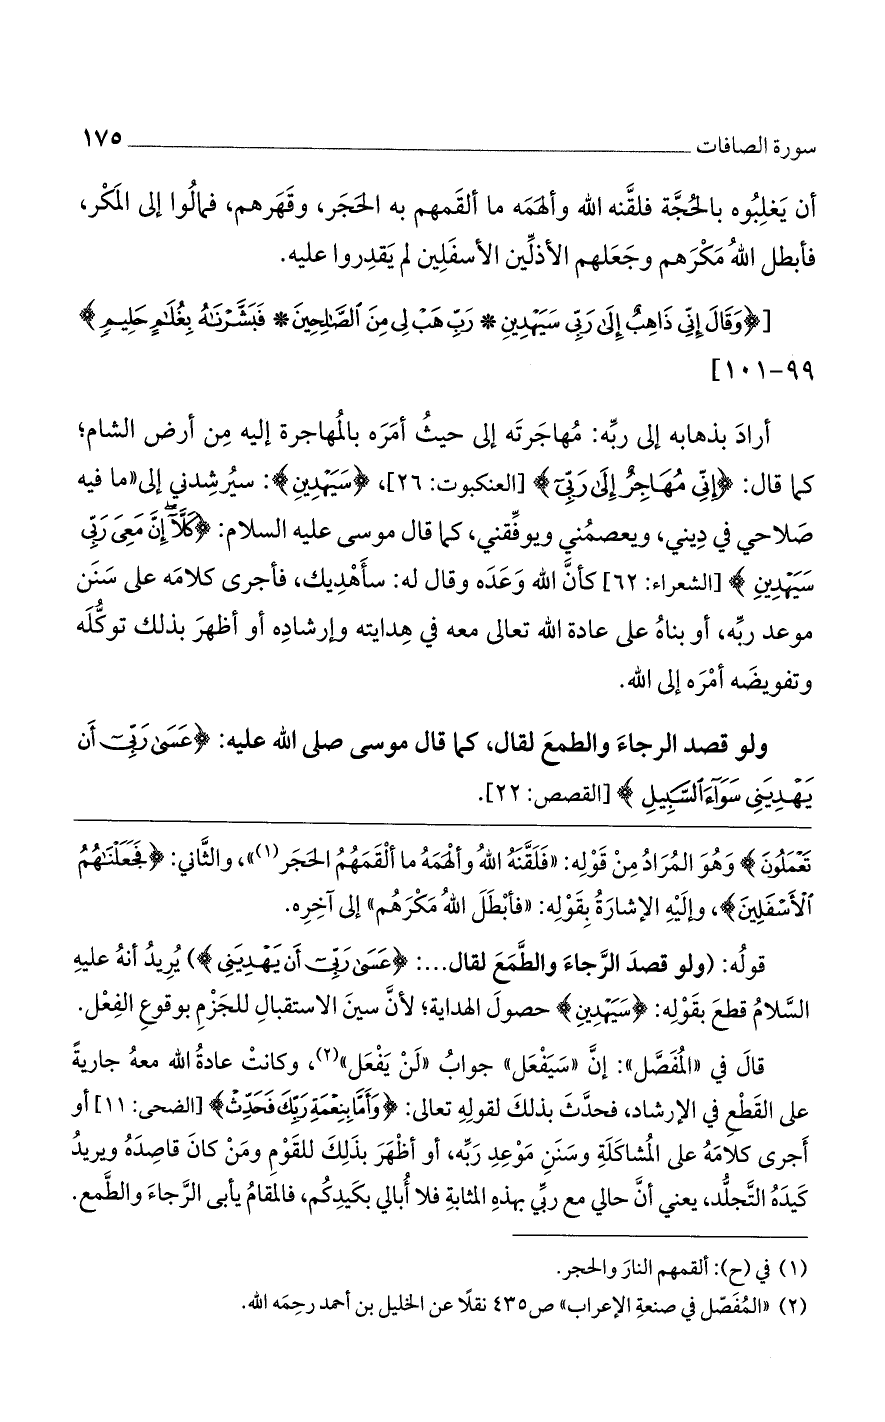 سورة الصافات ١٧٥
أن يَغلِبُوه بالحُجَّة فلقَّنه الله وألهمَه ما ألقَمهم به الحَجَر، وقَهَرهم، فمالُوا إلى المَكْر،
فأبطل اللهُ مَكْرَهم وجَعَلهم الأذلِّين الأسفَلِين لم يَقدِروا عليه.
[﴿وَقَالَ إِنِّي ذَاهِبٌ إِلَىٰ رَبِّي سَيَهْدِينِ * رَبِّ هَبْ لِي مِنَ ٱلصَّٰلِحِينَ * فَبَشَّرْنَٰهُ بِغُلَٰمٍ حَلِيمٍ﴾
٩٩-١٠١]
أرادَ بذهابه إلى ربِّه: مُهاجَرتَه إلى حيثُ أمَرَه بالمُهاجرة إليه مِن أرض الشام؛
كما قال: ﴿إِنِّي مُهَاجِرٌ إِلَىٰ رَبِّيٓ﴾ [العنكبوت: ٢٦]، ﴿سَيَهْدِينِ﴾: سيُرشِدني إلى «ما فيه
صَلاحي في دِيني، ويعصمُني ويوفِّقني، كما قال موسى عليه السلام: ﴿كَلَّآ إِنَّ مَعِيَ رَبِّي
سَيَهْدِينِ﴾ [الشعراء: ٦٢] كأنَّ الله وَعَدَه وقال له: سأَهْدِيك، فأجرى كلامَه على سَنَن
موعد ربِّه، أو بناهُ على عادة الله تعالى معه في هِدايته وإرشادِه أو أظهرَ بذلك توكُّلَه
وتفويضَه أمْرَه إلى الله.
ولو قصد الرجاءَ والطمعَ لقال، كما قال موسى صلى الله عليه: ﴿عَسَىٰ رَبِّيٓ أَن
يَهْدِيَنِي سَوَآءَ ٱلسَّبِيلِ﴾ [القصص: ٢٢].
تَعْمَلُونَ﴾ وَهُوَ المُرَادُ مِنْ قَوْلِه: «فَلَقَّنَهُ اللهُ وألْهَمَهُ ما ألْقَمَهُمُ الحَجَر(١)»، والثَّاني: ﴿فَجَعَلْنَٰهُمُ
ٱلْأَسْفَلِينَ﴾، وإلَيْهِ الإشارَةُ بِقَوْلِه: «فأبْطَلَ اللهُ مَكْرَهُم» إلى آخِرِه.
قولُه: (ولو قصدَ الرَّجاءَ والطَّمَعَ لقال...: ﴿عَسَىٰ رَبِّيٓ أَن يَهْدِيَنِي﴾) يُرِيدُ أنهُ عليهِ
السَّلامُ قطعَ بقَوْلِه: ﴿سَيَهْدِينِ﴾ حصولَ الهداية؛ لأنَّ سينَ الاستقبالِ للجَزْمِ بوقوعِ الفِعْل.
قالَ في «المُفَصَّل»: إنَّ «سَيَفْعَل» جوابُ «لَنْ يَفْعَل»(٢)، وكانتْ عادةُ الله معهُ جاريةً
على القَطْعِ في الإرشاد، فحدَّثَ بذلكَ لقولِهِ تعالى: ﴿وَأَمَّا بِنِعْمَةِ رَبِّكَ فَحَدِّثْ﴾ [الضحى: ١١] أو
أجرى كلامَهُ على المُشاكَلَةِ وسَنَنِ مَوْعِدِ رَبِّه، أو أظْهَرَ بذَلِكَ للقَوْمِ ومَنْ كانَ قاصِدَهُ ويريدُ
كَيدَهُ التَّجلُّد، يعني أنَّ حالي مع ربِّي بهذهِ المثابةِ فلا أُبالي بكَيدِكُم، فالمقامُ يأبى الرَّجاءَ والطَّمع.
(١) في (ح): ألقمهم النارَ والحجر.
(٢) «المُفَصّل في صنعةِ الإعراب» ص٤٣٥ نقلًا عن الخليل بن أحمد رحِمَه الله.